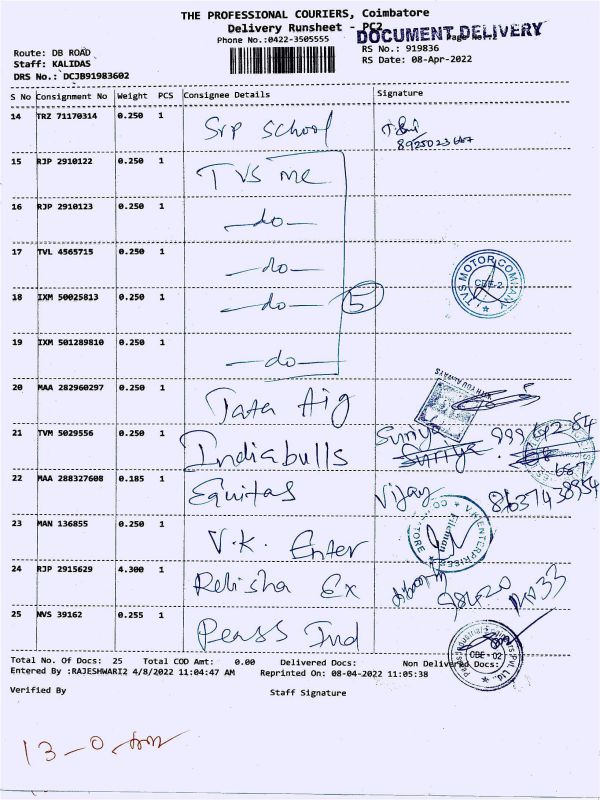 THE PROFESSIONAL COURIERS, Coimbatore
Delivery Runsheet - PC2
DOCUMENT DELIVERY
Phone No.:0422-3505555
Route: DB ROAD
RS No.: 919836
Staff: KALIDAS
RS Date: 08-Apr-2022
DRS No.: DCJB91983602
S No Consignment No Weight PCS Consignee Details Signature
14 TRZ 71170314 0.250 1 Srp School
8925023667
15 RJP 2910122 0.250 1 TVS me
16 RJP 2910123 0.250 1 —do—
17 TVL 4565715 0.250 1 —do—
TVS MOTOR COMPANY
CBE-2
18 IXM 50025813 0.250 1 —do— 5
19 IXM 501289810 0.250 1 —do—
WITH YOU ALWAYS
20 MAA 282960297 0.250 1 Tata Aig
21 TVM 5029556 0.250 1 Indiabulls Suriya
Suriya
22 MAA 288327608 0.185 1 Equitas Vijay 8637438954
23 MAN 136855 0.250 1 V.K. Enter
V.K ENTERPRISES
24 RJP 2915629 4.300 1 Relisha Ex
98420
25 NVS 39162 0.255 1 Peass Ind
CBE - 02
Total No. Of Docs: 25 Total COD Amt: 0.00 Delivered Docs: Non Delivered Docs:
Entered By :RAJESHWARI2 4/8/2022 11:04:47 AM Reprinted On: 08-04-2022 11:05:38
Verified By Staff Signature